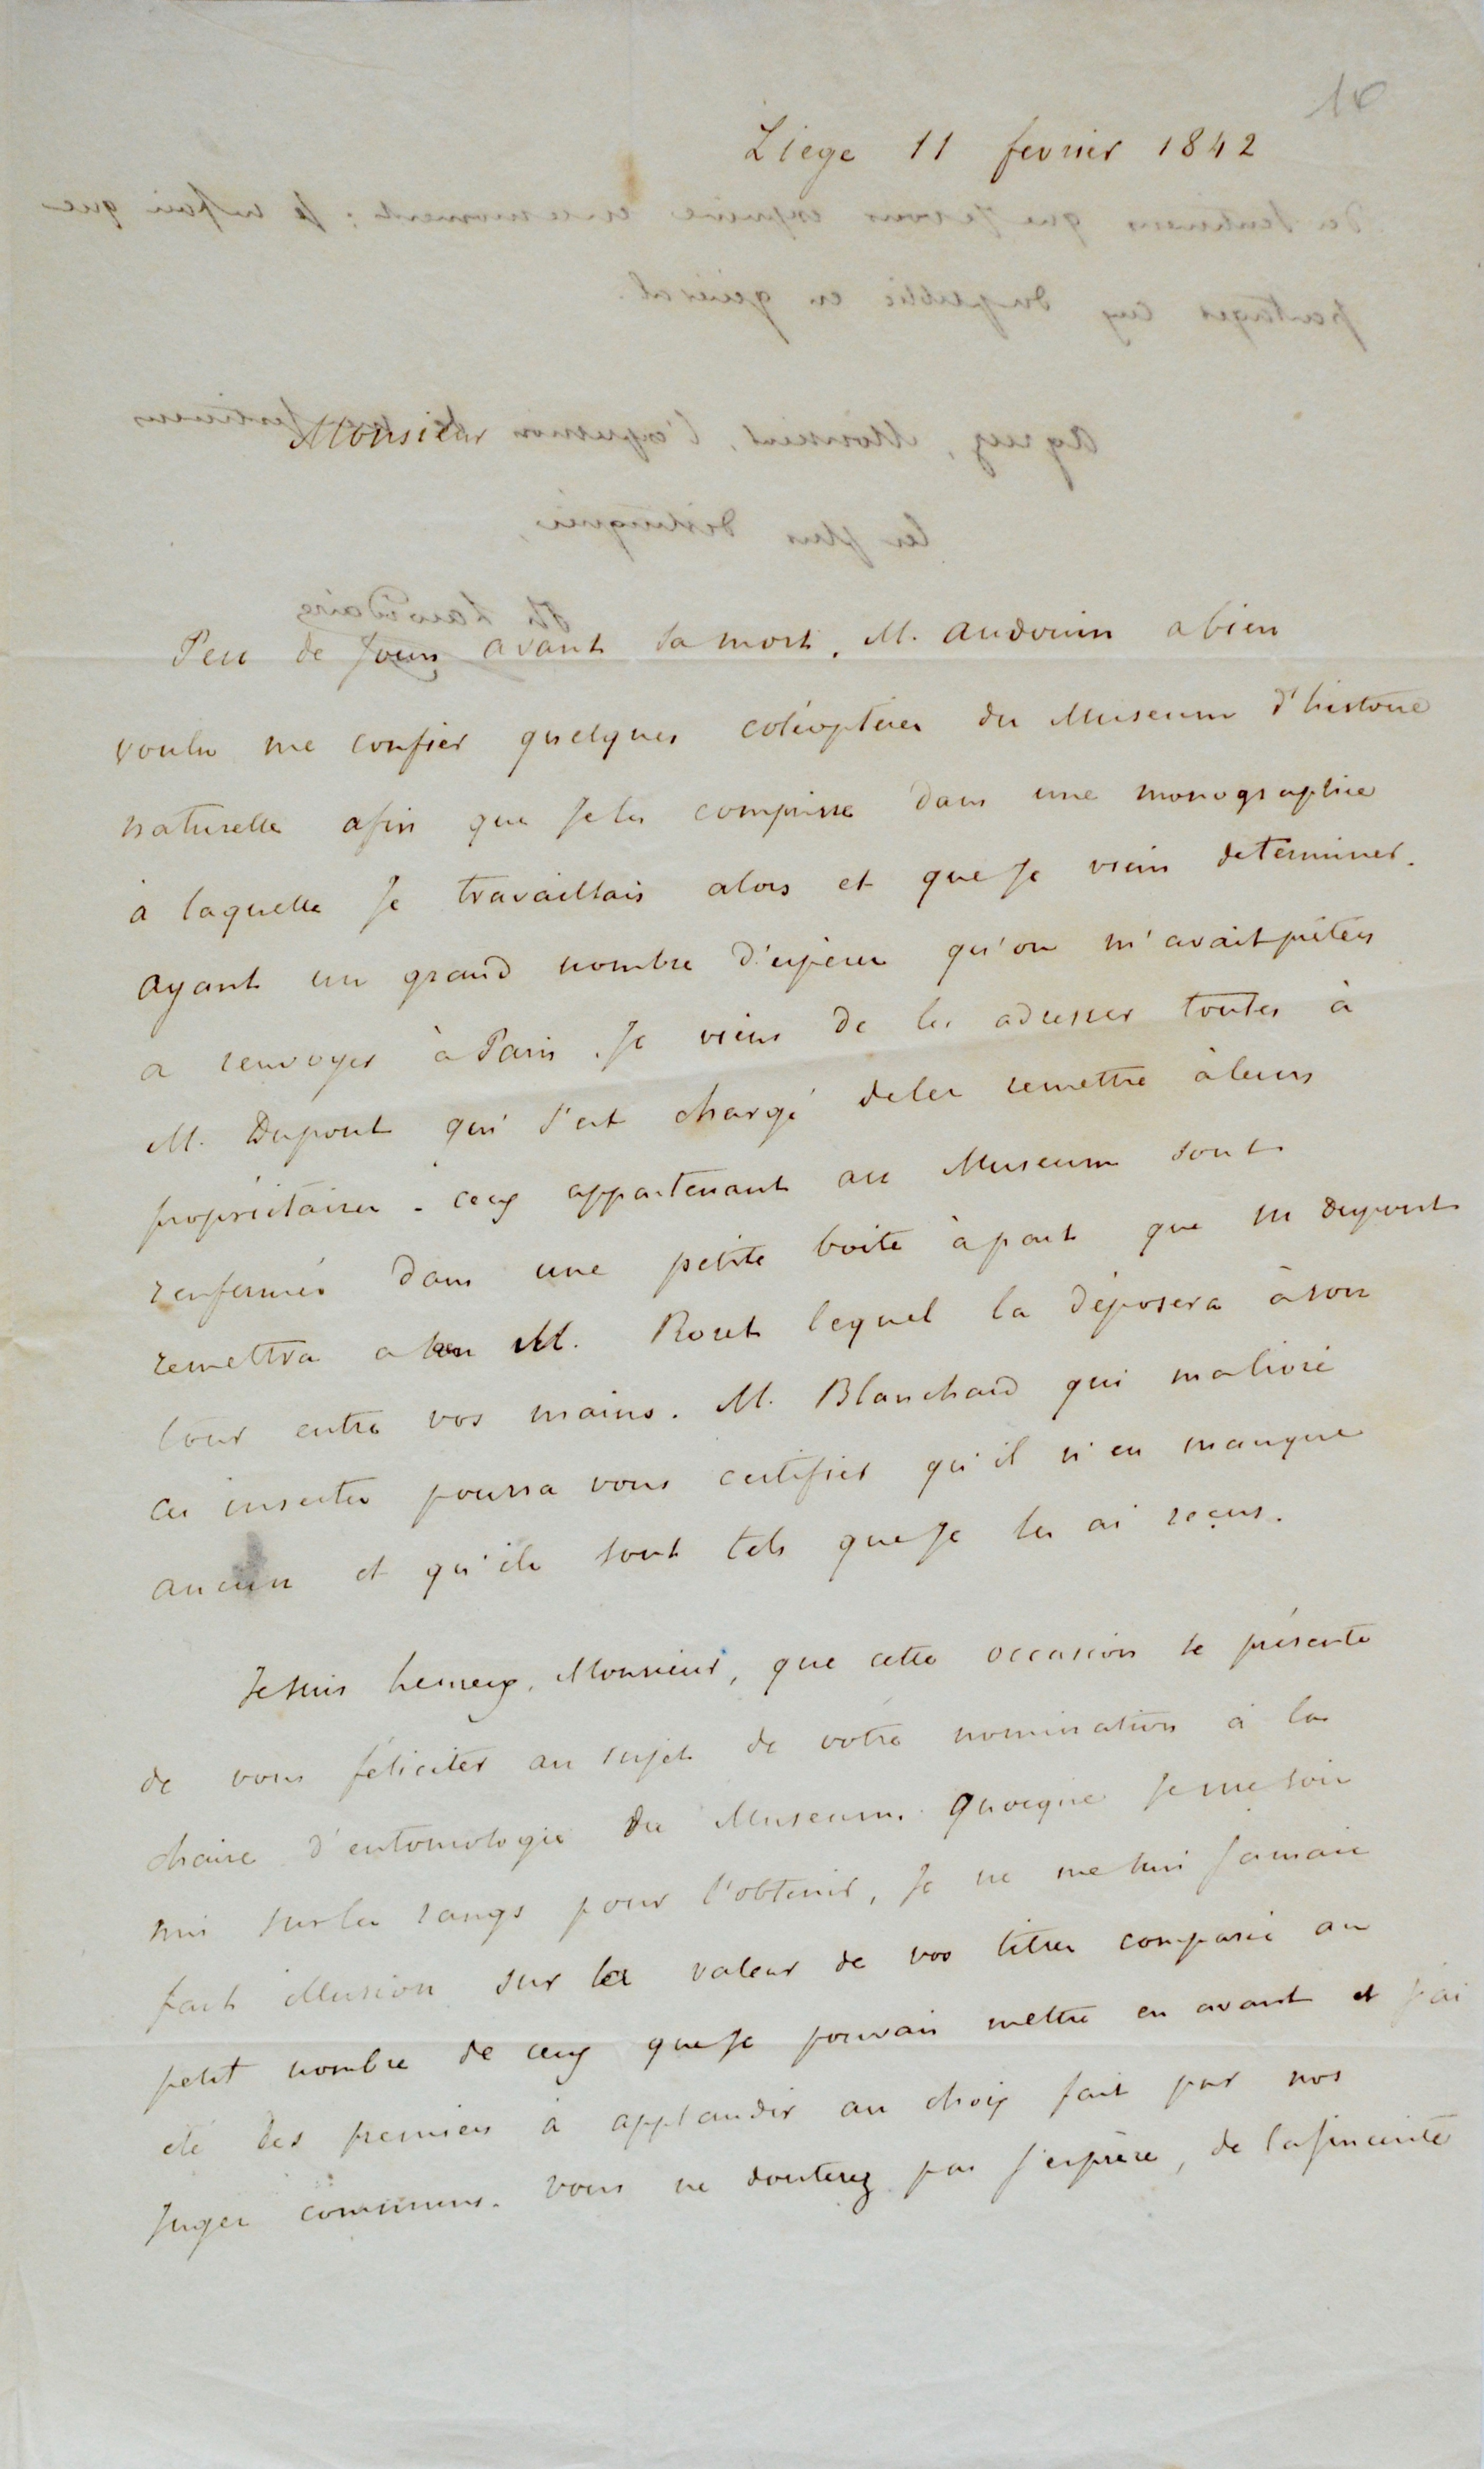 16
Liege 11 fevrier 1842
Monsieur
Peu de jours avant sa mort, M. Audouin a bien
voulu me confier quelques coléoptères du Museum d'histoire
naturelle afin que je les comprisse dans une monographie
à laquelle je travaillais alors et que je viens de terminer.
ayant un grand nombre d'espèces qu'on m'avait prêtées
a renvoyer à Paris. je viens de les adresser toutes à
M. Dupont qui s'est chargé de les remettre à leurs
propriétaires. ceux appartenant au Museum sont
renfermés dans une petite boite à part que M Dupont
remettra a M. Roret lequel la déposera à son
tour entre vos mains. M. Blanchard qui m'a livré
ces insectes pourra vous certifier qu'il n'en manque
aucun et qu'ils sont tels que je les ai reçus.
Je suis heureux, Monsieur, que cette occasion se présente
de vous féliciter au sujet de votre nomination à la
chaire d'entomologie du Museum. quoique je me sois
mis sur les rangs pour l'obtenir, je ne me suis jamais
fait illusion sur la valeur de vos titres comparée au
petit nombre de ceux que je pouvais mettre en avant et j'ai
été des premiers à applaudir au choix fait par nos
juges communs. vous ne douterez pas j'espère, de la sincérité
des sentimens que je vous exprime en ce moment : je ne fais que
partager ceux du public en général.
agréez, Monsieur, l'expression des sentimens
les plus distingués,
Th Lacordaire